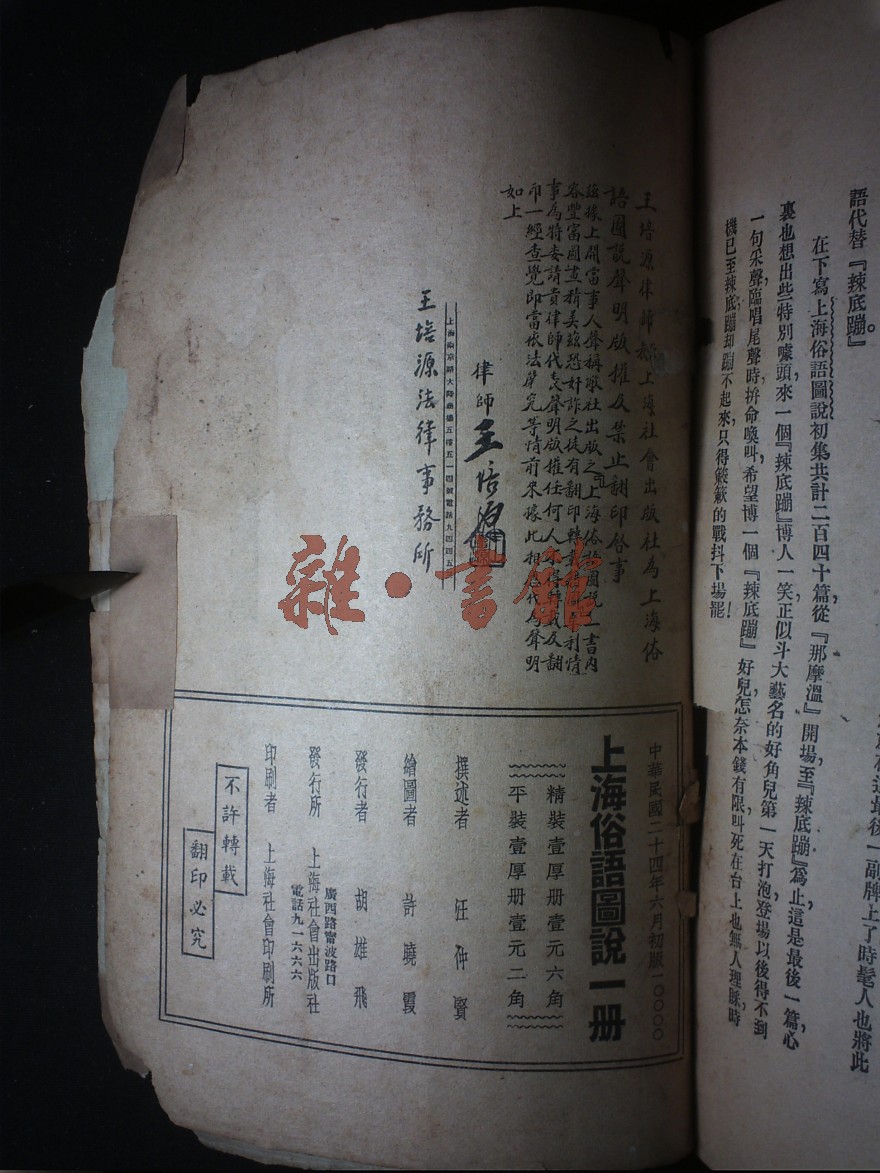 語代替『辣底蹦』。
在下寫上海俗語圖說初集共計二百四十篇，從『那摩溫』開場，至『辣底蹦』爲止，這是最後一篇，心
裏也想出些特別噱頭來，一個『辣底蹦』博人一笑，正似斗大藝名的好角兒，第一天打泡登場以後，得不到
一句采聲，臨唱尾聲時，拚命喚叫，希望博一個『辣底蹦』好兒，怎奈本錢有限，叫死在台上也無人理睬，時
機已至辣底，蹦却蹦不起來，只得簌簌的戰抖下場罷！
最後一副牌上了時髦人也將此
王培源律師
上海社會出版社為上海俗
語圖說聲明版權及禁止翻印啓事
茲據上開當事人聲稱敝社出版之上海俗語圖說一書內
容豐富圖畫精美茲恐奸詐之徒有翻印轉載
事為特委請貴律師代表聲明版權任何人不得轉載及翻
印一經查覺即當依法嚴究等情前來據此相應代為聲明
如上
律師 王培源
上海南京路大陸商場五樓五一四號電話九四四五
王培源法律事務所
中華民國二十四年六月初版一〇〇〇〇
上海俗語圖說一册
精裝壹厚册壹元六角
平裝壹厚册壹元二角
撰述者 汪仲賢
繪圖者 許曉霞
發行者 胡雄飛
發行所 上海社會出版社
廣西路甯波路口
電話九一六六六
印刷者 上海社會印刷所
不許轉載
翻印必究
雜·書館